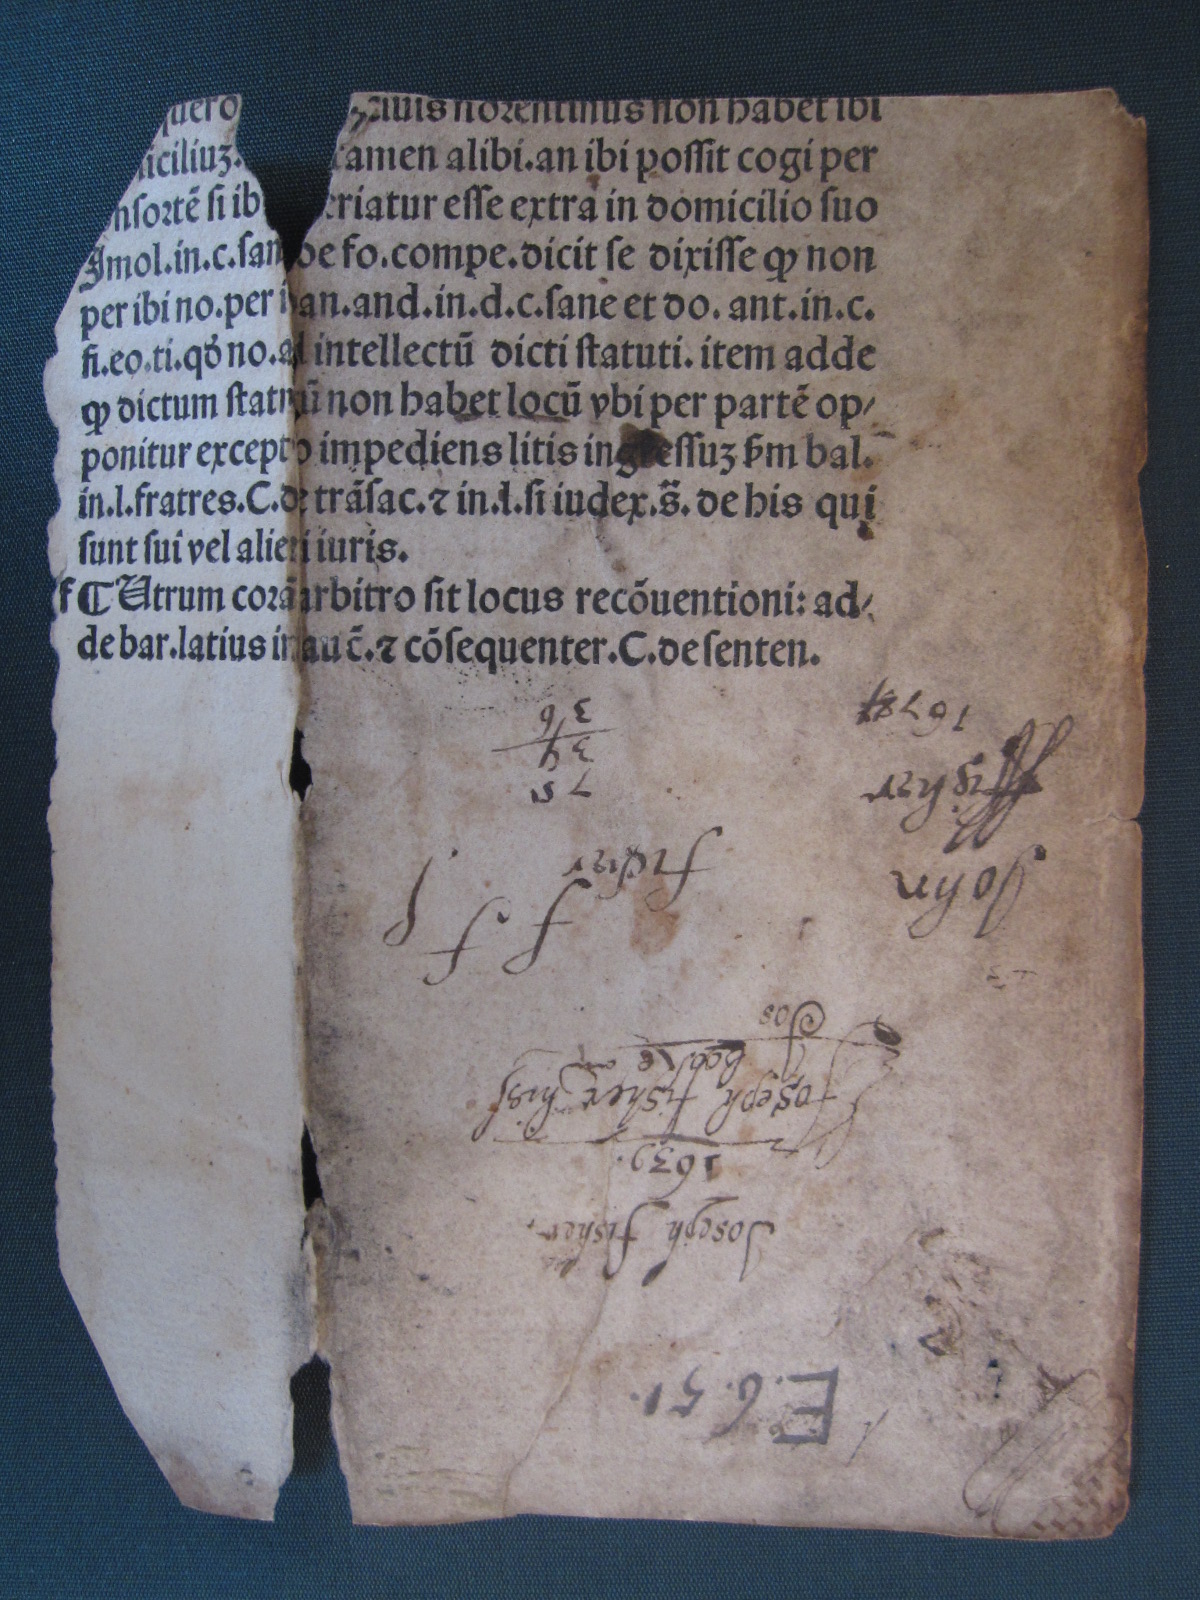 quero ꝫ ciuis florentinus non habet ibi
iciliuꝫ. tamen alibi.an ibi possit cogi per
nsortē si ib eriatur esse extra in domicilio suo
Imol.in.c.san de fo.compe.dicit se dixisse ꝙ non
per ibi no.per i an.and.in.d.c.sane et do. ant.in.c.
fi.eo.ti.qđ no.a intellectū dicti statuti. item adde
ꝙ dictum statuū non habet locū vbi per partē op⸗
ponitur exceptio impediens litis ingressuꝫ ẜm bal.
in.l.fratres.C.de trāsac.⁊ in.l.si iudex.s̄.de his qui
sunt sui vel alieni iuris.
f ¶ Utrum corā arbitro sit locus recōuentioni: ad⸗
de bar.latius in au c̄.⁊ cōsequenter.C.de senten.
E.6.51.
Joseph fisher.
1639.
Joseph fisher his
Booke
Jos
John
ffisher
fisher
f f
75
39
36